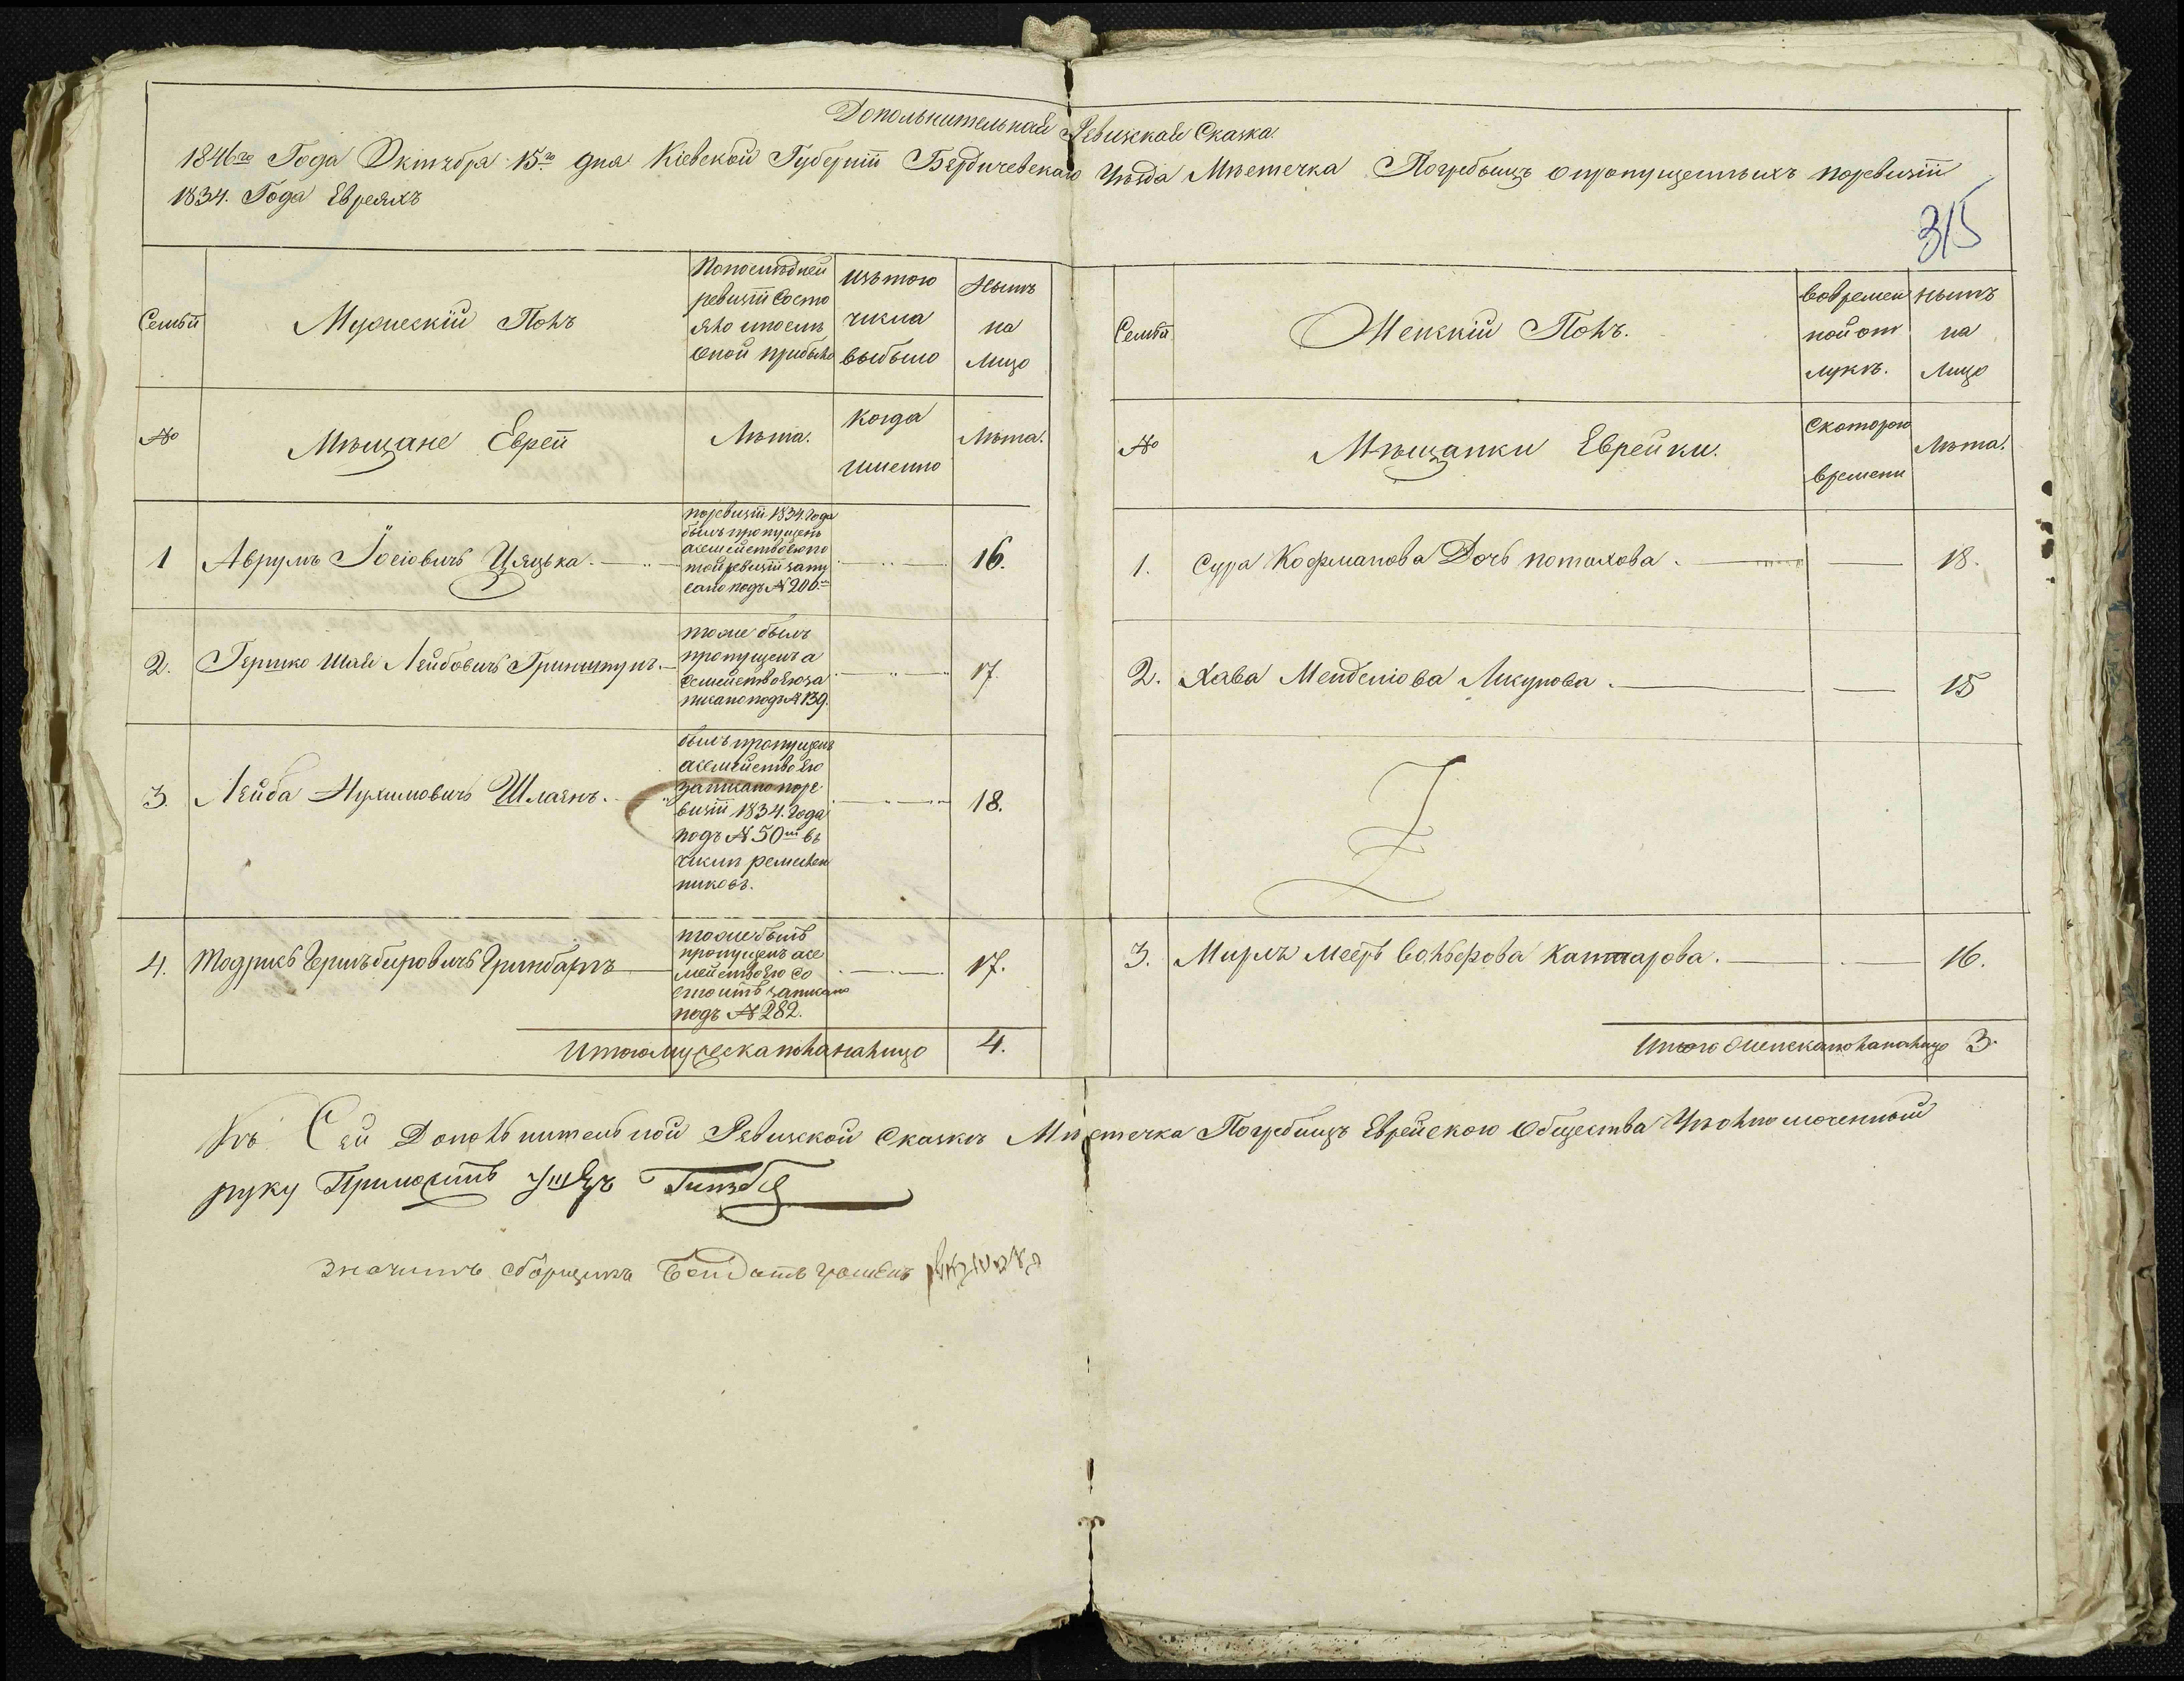 Дополнительная Ревизская Сказка.
1846го Года Октября 15го дня Кіевской Губерніи Бердичевскаго Уѣзда Мѣстечка Погребищъ о пропущенныхъ поревизіи
1834. Года Евреяхъ
315
Семьи
Мужескій Полъ
Попослѣдней
ревизіи Состо
яло ипослѣ
оной прибыло
Изътого
числа
выбыло
Нынѣ
на
Лицо
№
Мѣщане Евреи
Лѣта.
Когда
именно
Лѣта.
1 Аврумъ Іосіовичъ Цяцька.
поревизіи 1834. Года
былъ пропущенъ
асемейство его по
той ревизіи запи
сано подъ № 200.
16.
2. Гершко Шая Лейбовичъ Гриншпунъ.
тоже былъ
пропущенъ а
семейство его за
писано подъ № 139.
17.
3. Лейба Нухимовичъ Шлаенъ.
былъ пропущенъ
асемейство его
записано поре
визіи 1834. Года
подъ № 50 въ
числѣ ремеслен
никовъ.
18.
4. Тодрисъ Гершъ Беровичъ Гринбармъ
тоже былъ
пропущенъ асе
мейство его со
стоитъ записано
подъ № 282.
17.
Итого мужеска пола налицо 4.
Семьи
Женскій Полъ.
вовремен
ной от
лукѣ.
нынѣ
на
Лицо
№
Мѣщанки Еврейки.
Скоторого
времени
Лѣта.
1. Сура Кофманова Дочь потахова. 18.
2. Хава Менделіова Ликунова. 15
3. Мирля Мееръ Вольфова Катарова. 16.
Итого женска пола налицо 3.
Къ Сей Дополнительной Ревизской Сказкѣ Мѣстечка Погребищъ Еврейского Общества Уполномоченный
руку Приложилъ
значитъ сборщикъ